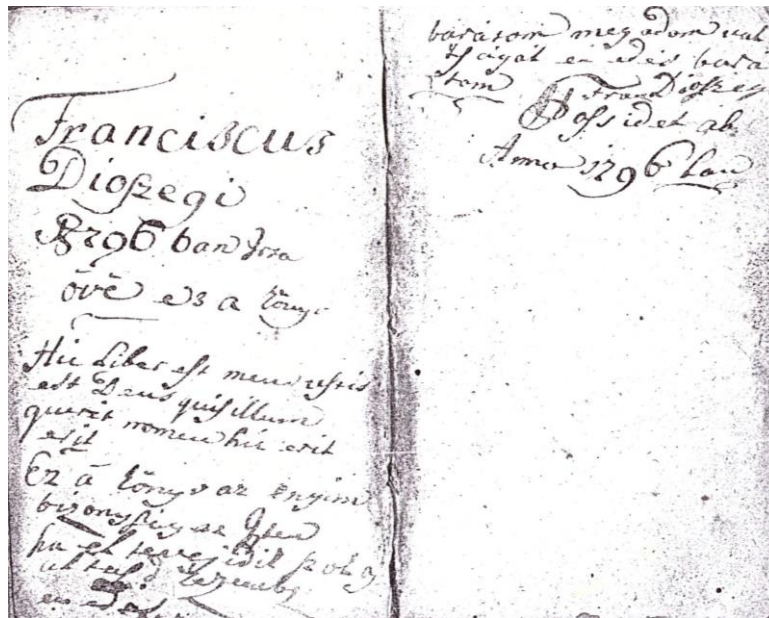 Franciscus
Dioszegi
1796 ban irta
övé es a köny
Hic Liber est meus testis
est Deus quis illum
querit nomen hic erit
erit
Ez ā köny az enyim
bizonyság az Isten
ha el
en edes
baratom meg adom
en edes bara
tom Fran Dioszegi
Possidet ab
Anno 1796 ban